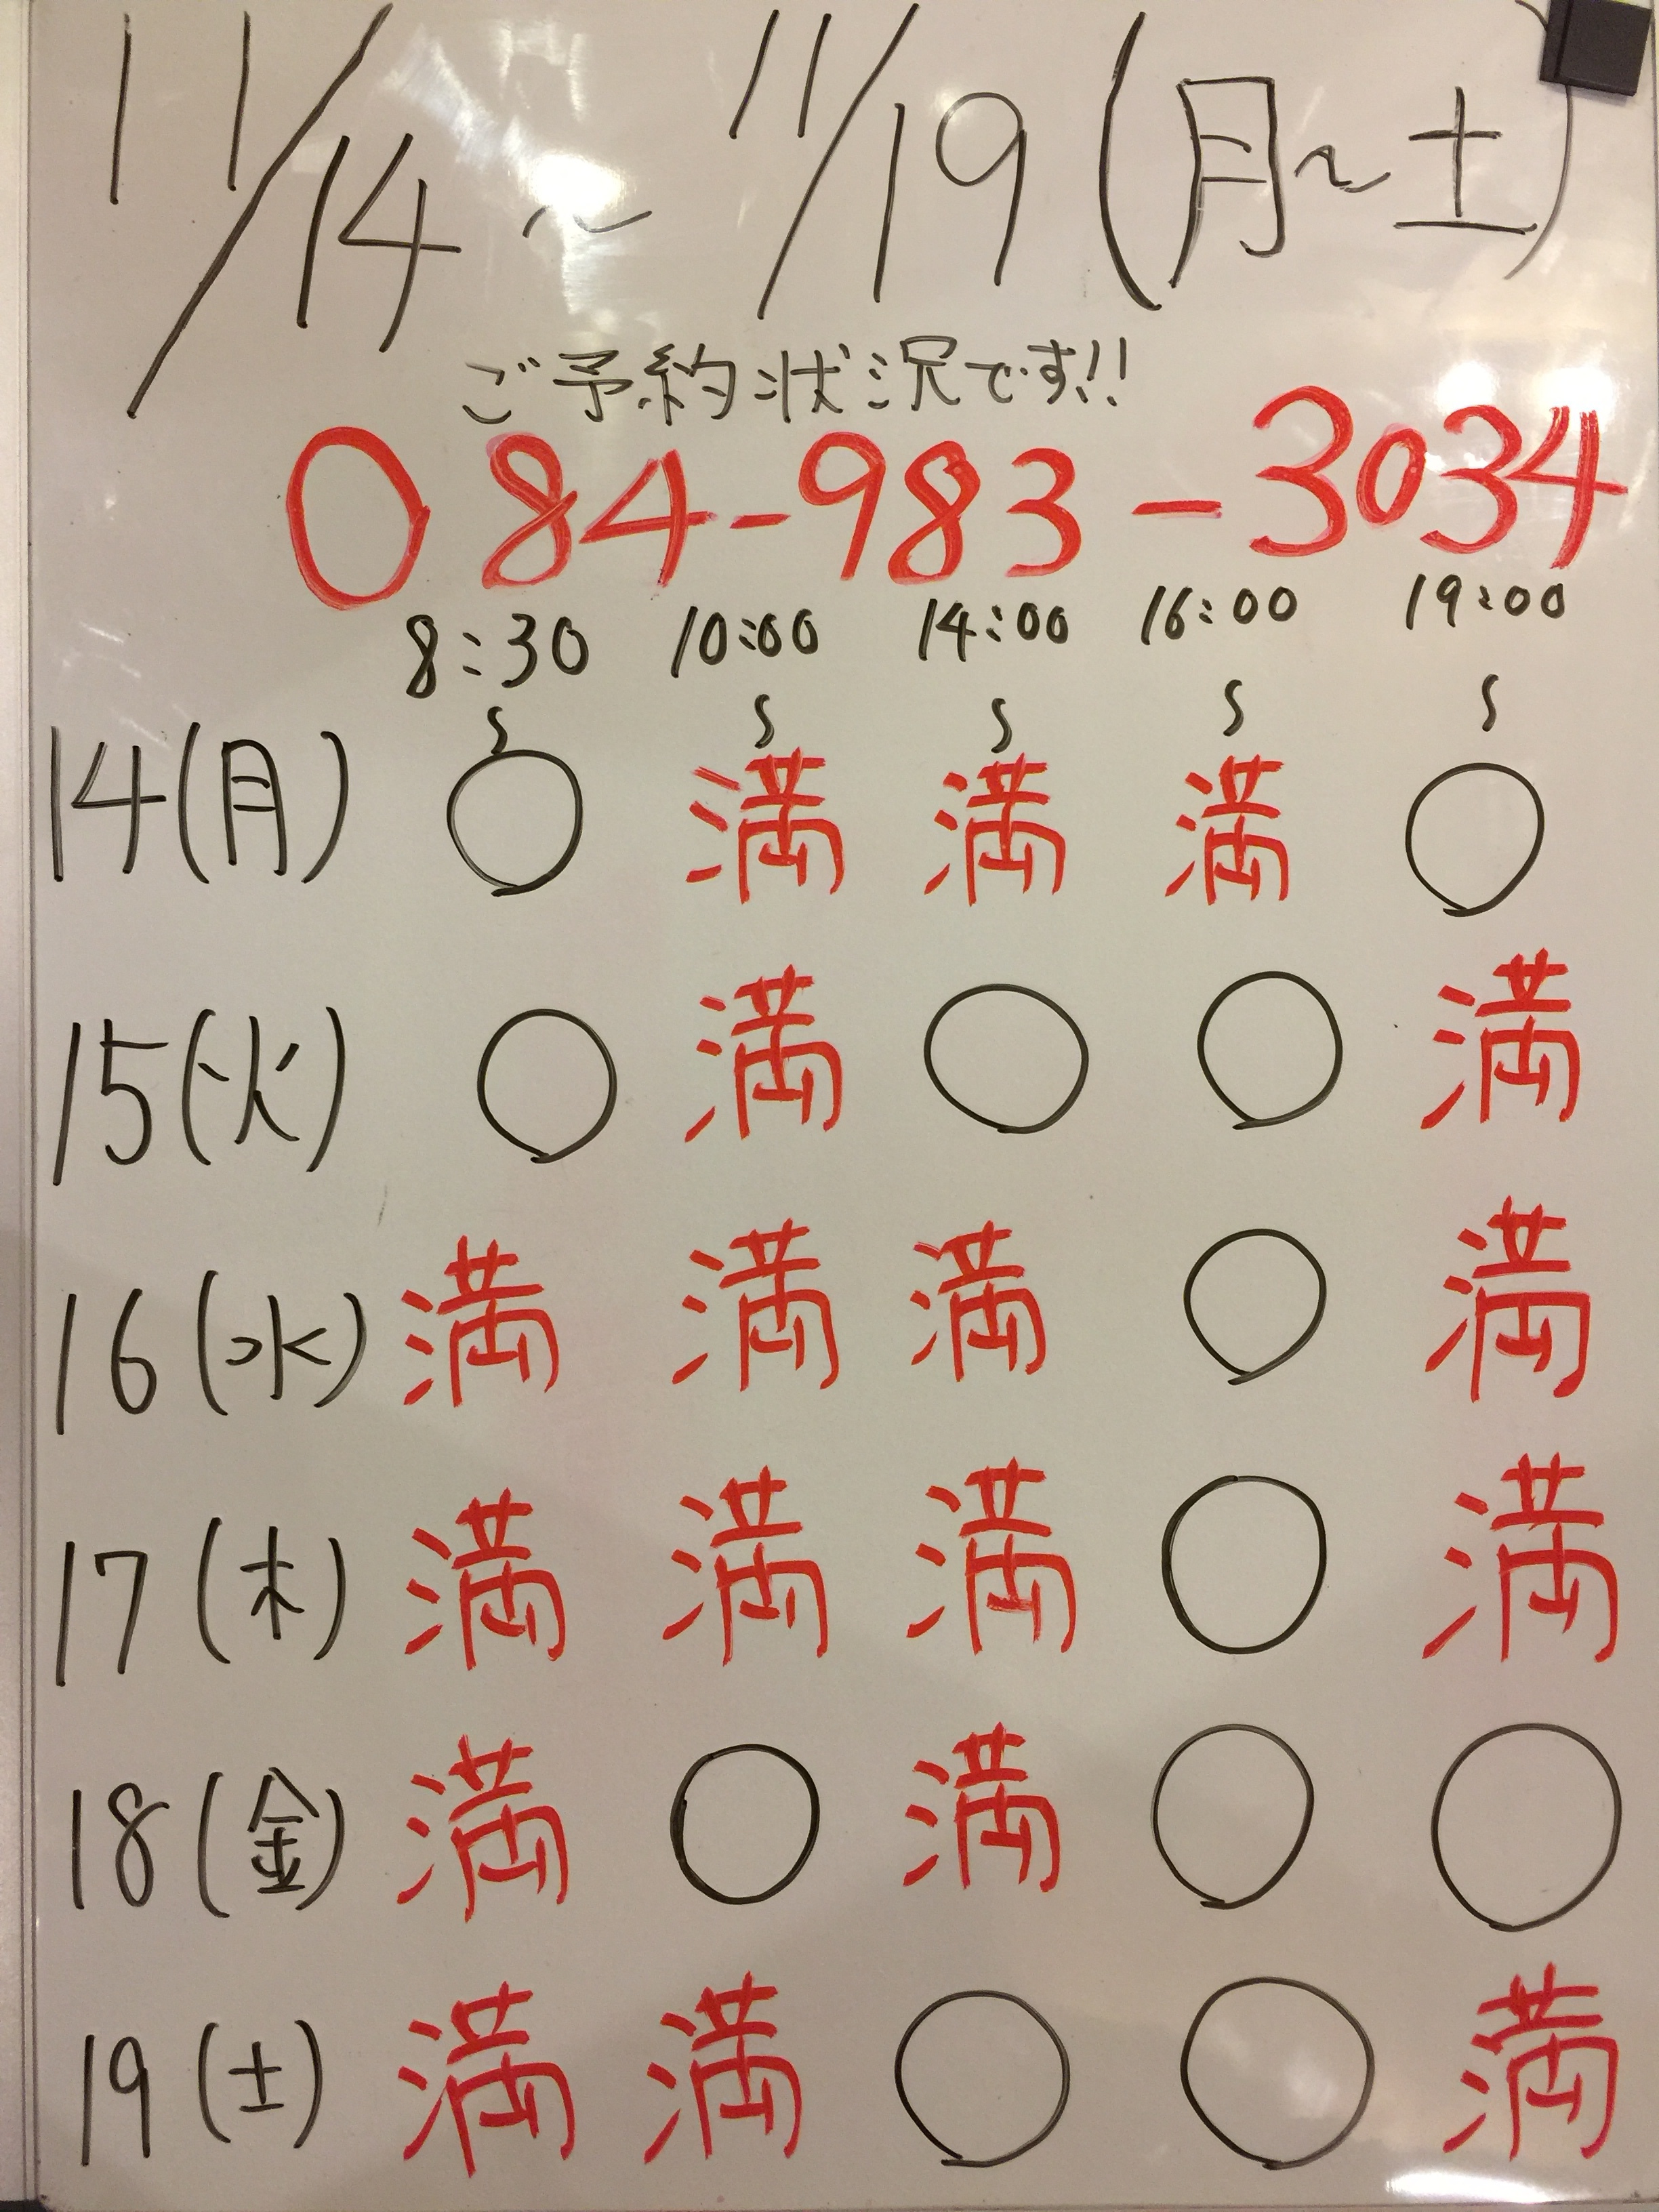 11/14～11/19(月～土)
ご予約状況です!!
084-983-3034
8:30 10:00 14:00 16:00 19:00
〜 〜 〜 〜 〜
14(月) ○ 満 満 満 ○
15(火) ○ 満 ○ ○ 満
16(水) 満 満 満 ○ 満
17(木) 満 満 満 ○ 満
18(金) 満 ○ 満 ○ ○
19(土) 満 満 ○ ○ 満